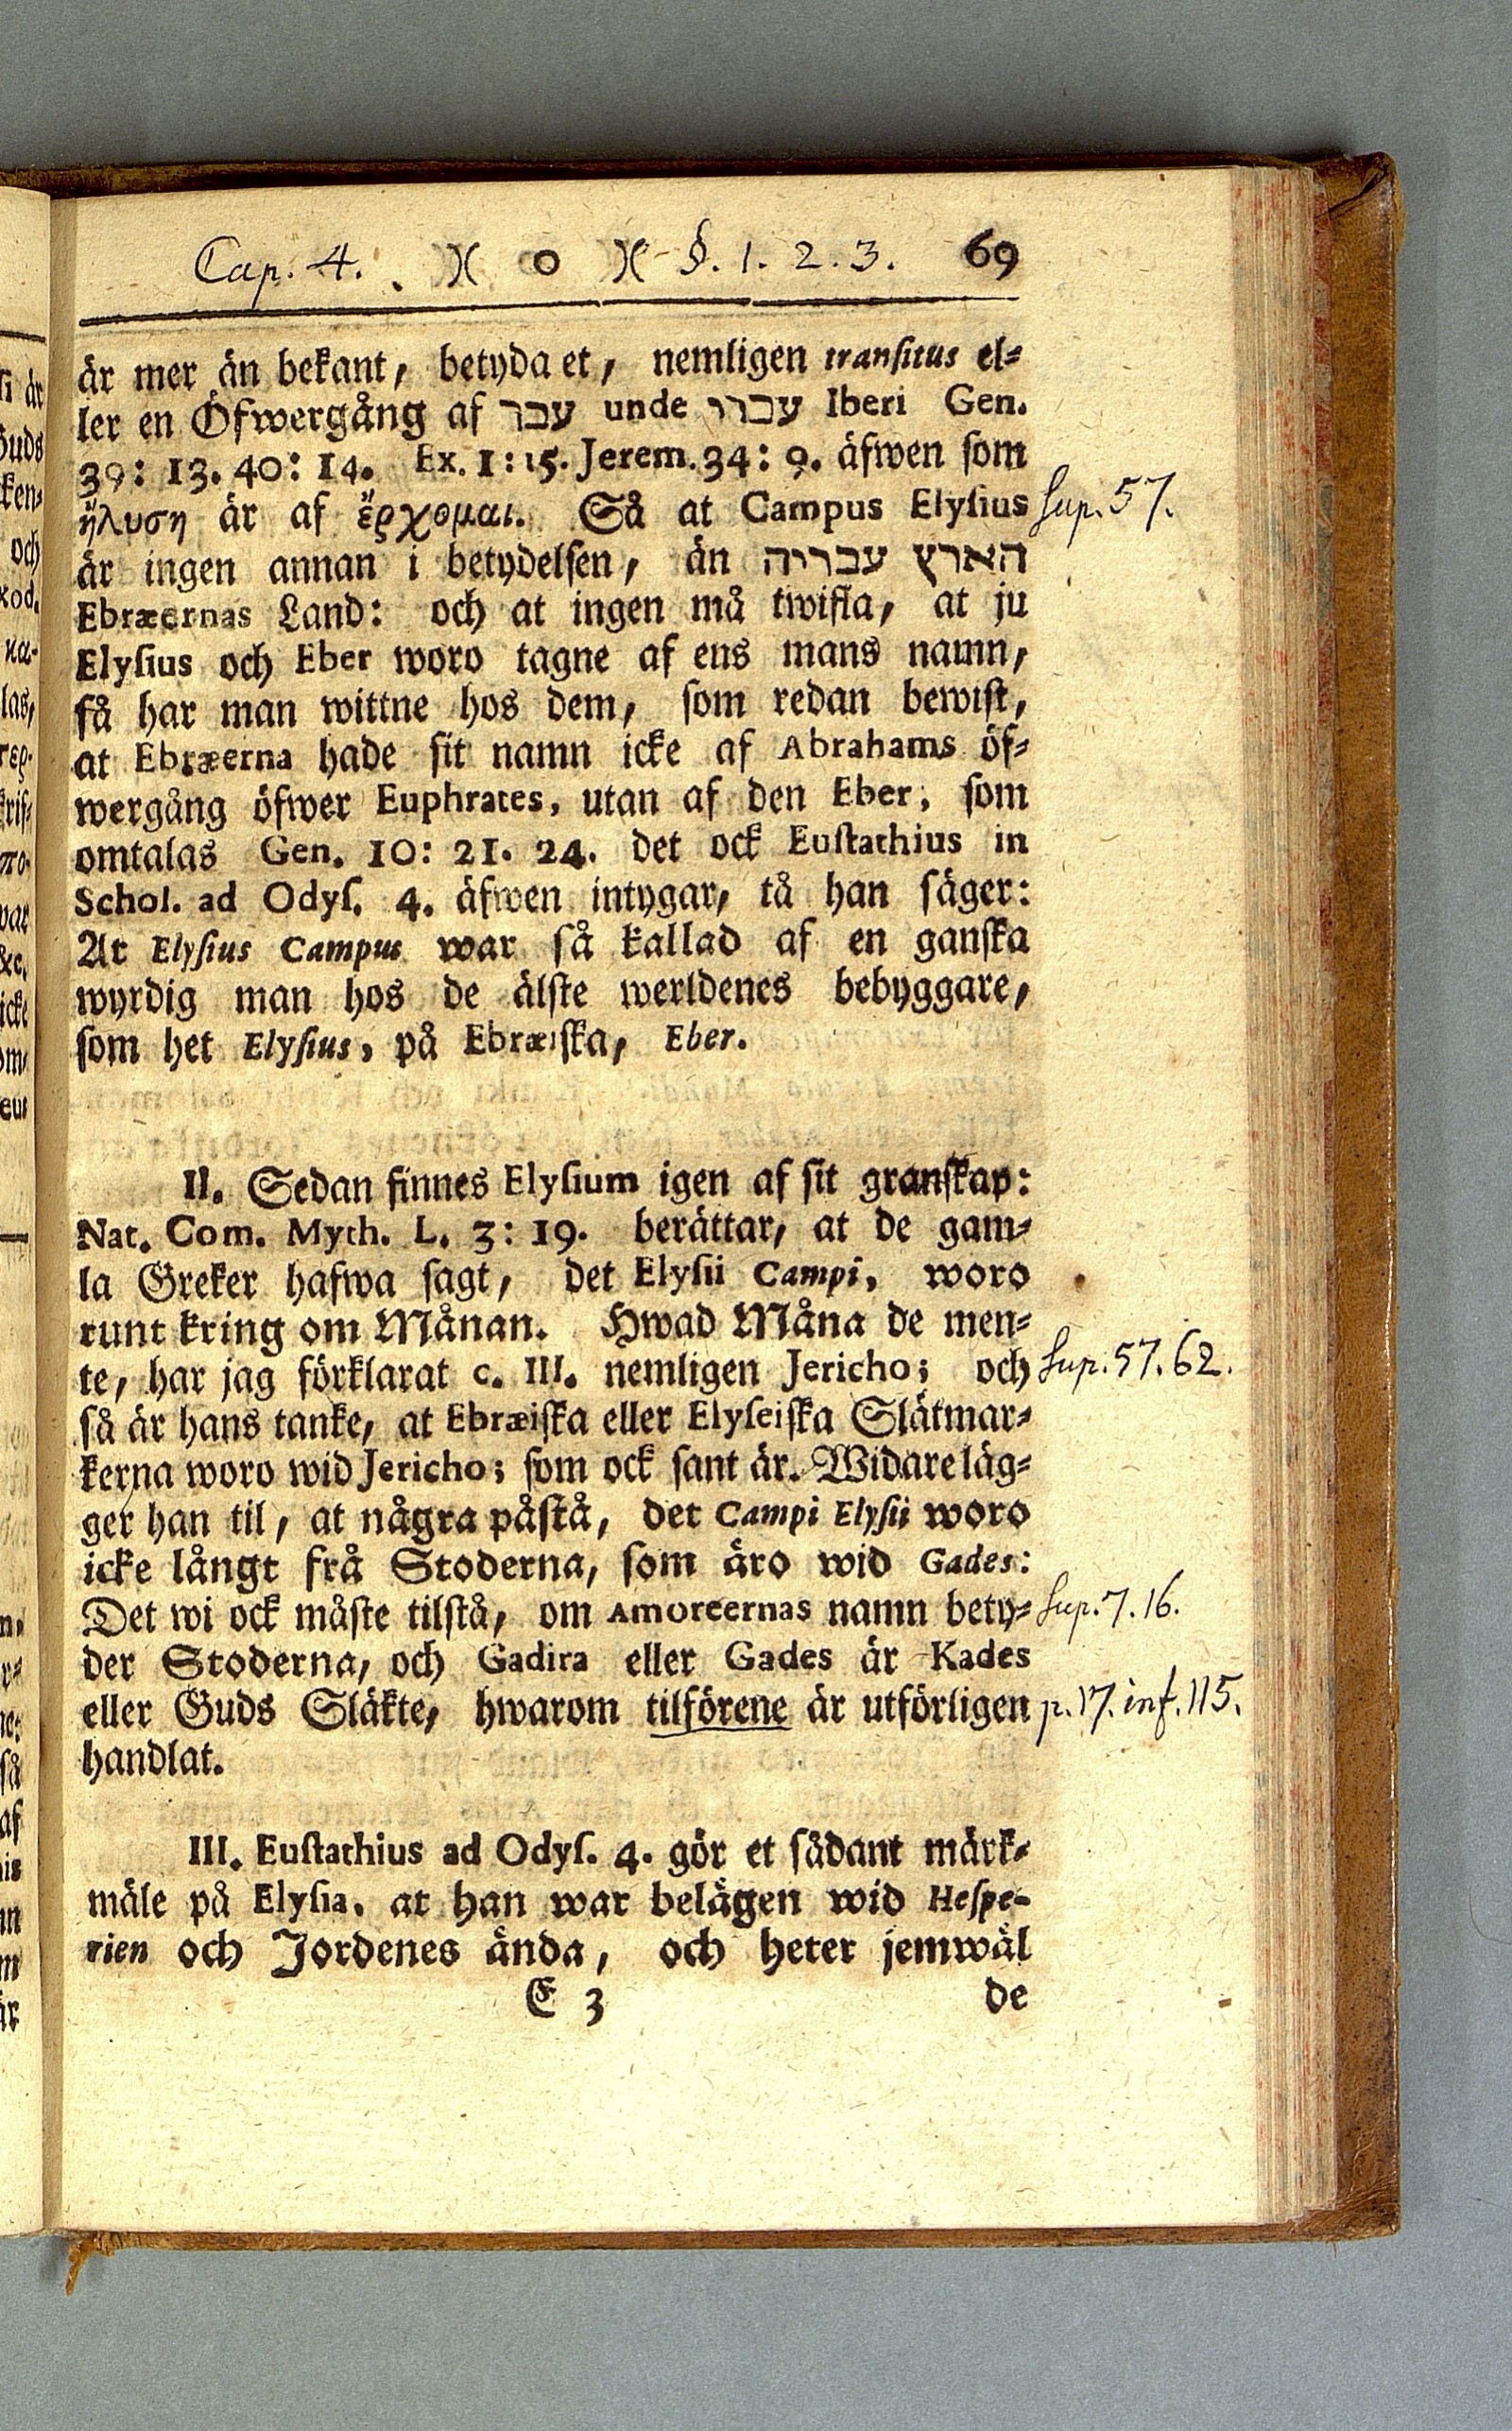 Cap. 4. . )( o )( §. 1. 2. 3. 69
är mer än bekant, betyda et, nemligen transitus el-
ler en Öfwergång af עבר unde עברו Iberi Gen.
39: 13. 40: 14. Ex. 1: 15. Jerem. 34: 9. äfwen som
ἤλυση är af ἔρχομαι. Så at Campus Elysius sup. 57.
är ingen annan i betydelsen, än הארץ עבריה
Ebræernas Land: och at ingen må twifla, at ju
Elysius och Eber woro tagne af ens mans namn,
så har man wittne hos dem, som redan bewist,
at Ebræerna hade sit namn icke af Abrahams öf-
wergång öfwer Euphrates, utan af den Eber, som
omtalas Gen. 10: 21. 24. det ock Eustathius in
Schol. ad Odys. 4. äfwen intygar, tå han säger:
At Elysius Campus war så kallad af en ganska
wyrdig man hos de älste werldenes bebyggare,
som het Elysius, på Ebræiska, Eber.
II. Sedan finnes Elysium igen af sit granskap:
Nat. Com. Myth. L. 3: 19. berättar, at de gam-
la Greker hafwa sagt, det Elysii Campi, woro
runt kring om Månan. Hwad Måna de men-
te, har jag förklarat c. III. nemligen Jericho; och sup. 57. 62.
så är hans tanke, at Ebræiska eller Elyseiska Slätmar-
kerna woro wid Jericho; som ock sant är. Widare läg-
ger han til, at några påstå, det Campi Elysii woro
icke långt frå Stoderna, som äro wid Gades:
Det wi ock måste tilstå, om Amoreernas namn bety- sup. 7. 16.
der Stoderna, och Gadira eller Gades är Kades
eller Guds Släkte, hwarom tilförene är utförligen p. 17. inf. 115.
handlat.
III. Eustathius ad Odys. 4. gör et sådant märk-
mäle på Elysia, at han war belägen wid Hespe-
rien och Jordenes ända, och heter jemwäl
E 3 de